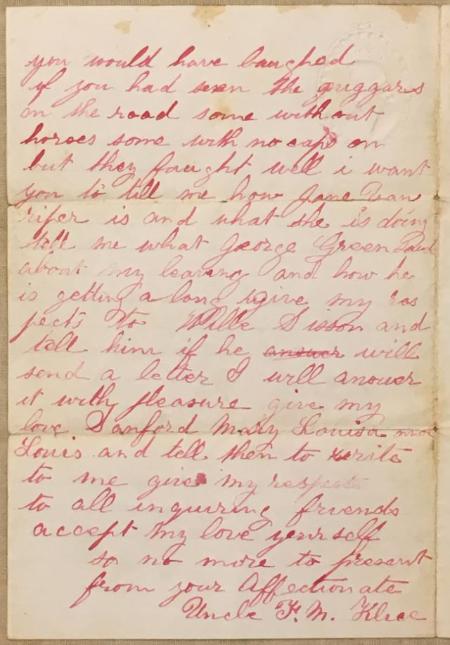 you would have laughed
if you had seen the
on the road some without
horses some with no caps on
but they faught well i want
you to till me how Jane Van
riper is and what she is doing
tell me what George Green said
about my leaving and how he
is getting a long give my res
pects to Wille Sisson and
tell him if he answer will
send a letter I will answer
it with pleasure give my
love Sanford Mary Louisa
Louis and tell then to write
to me give my respects
to all inquiring friends
accept my love yourself
so no more to present
from your Affectionate
Uncle F. M.